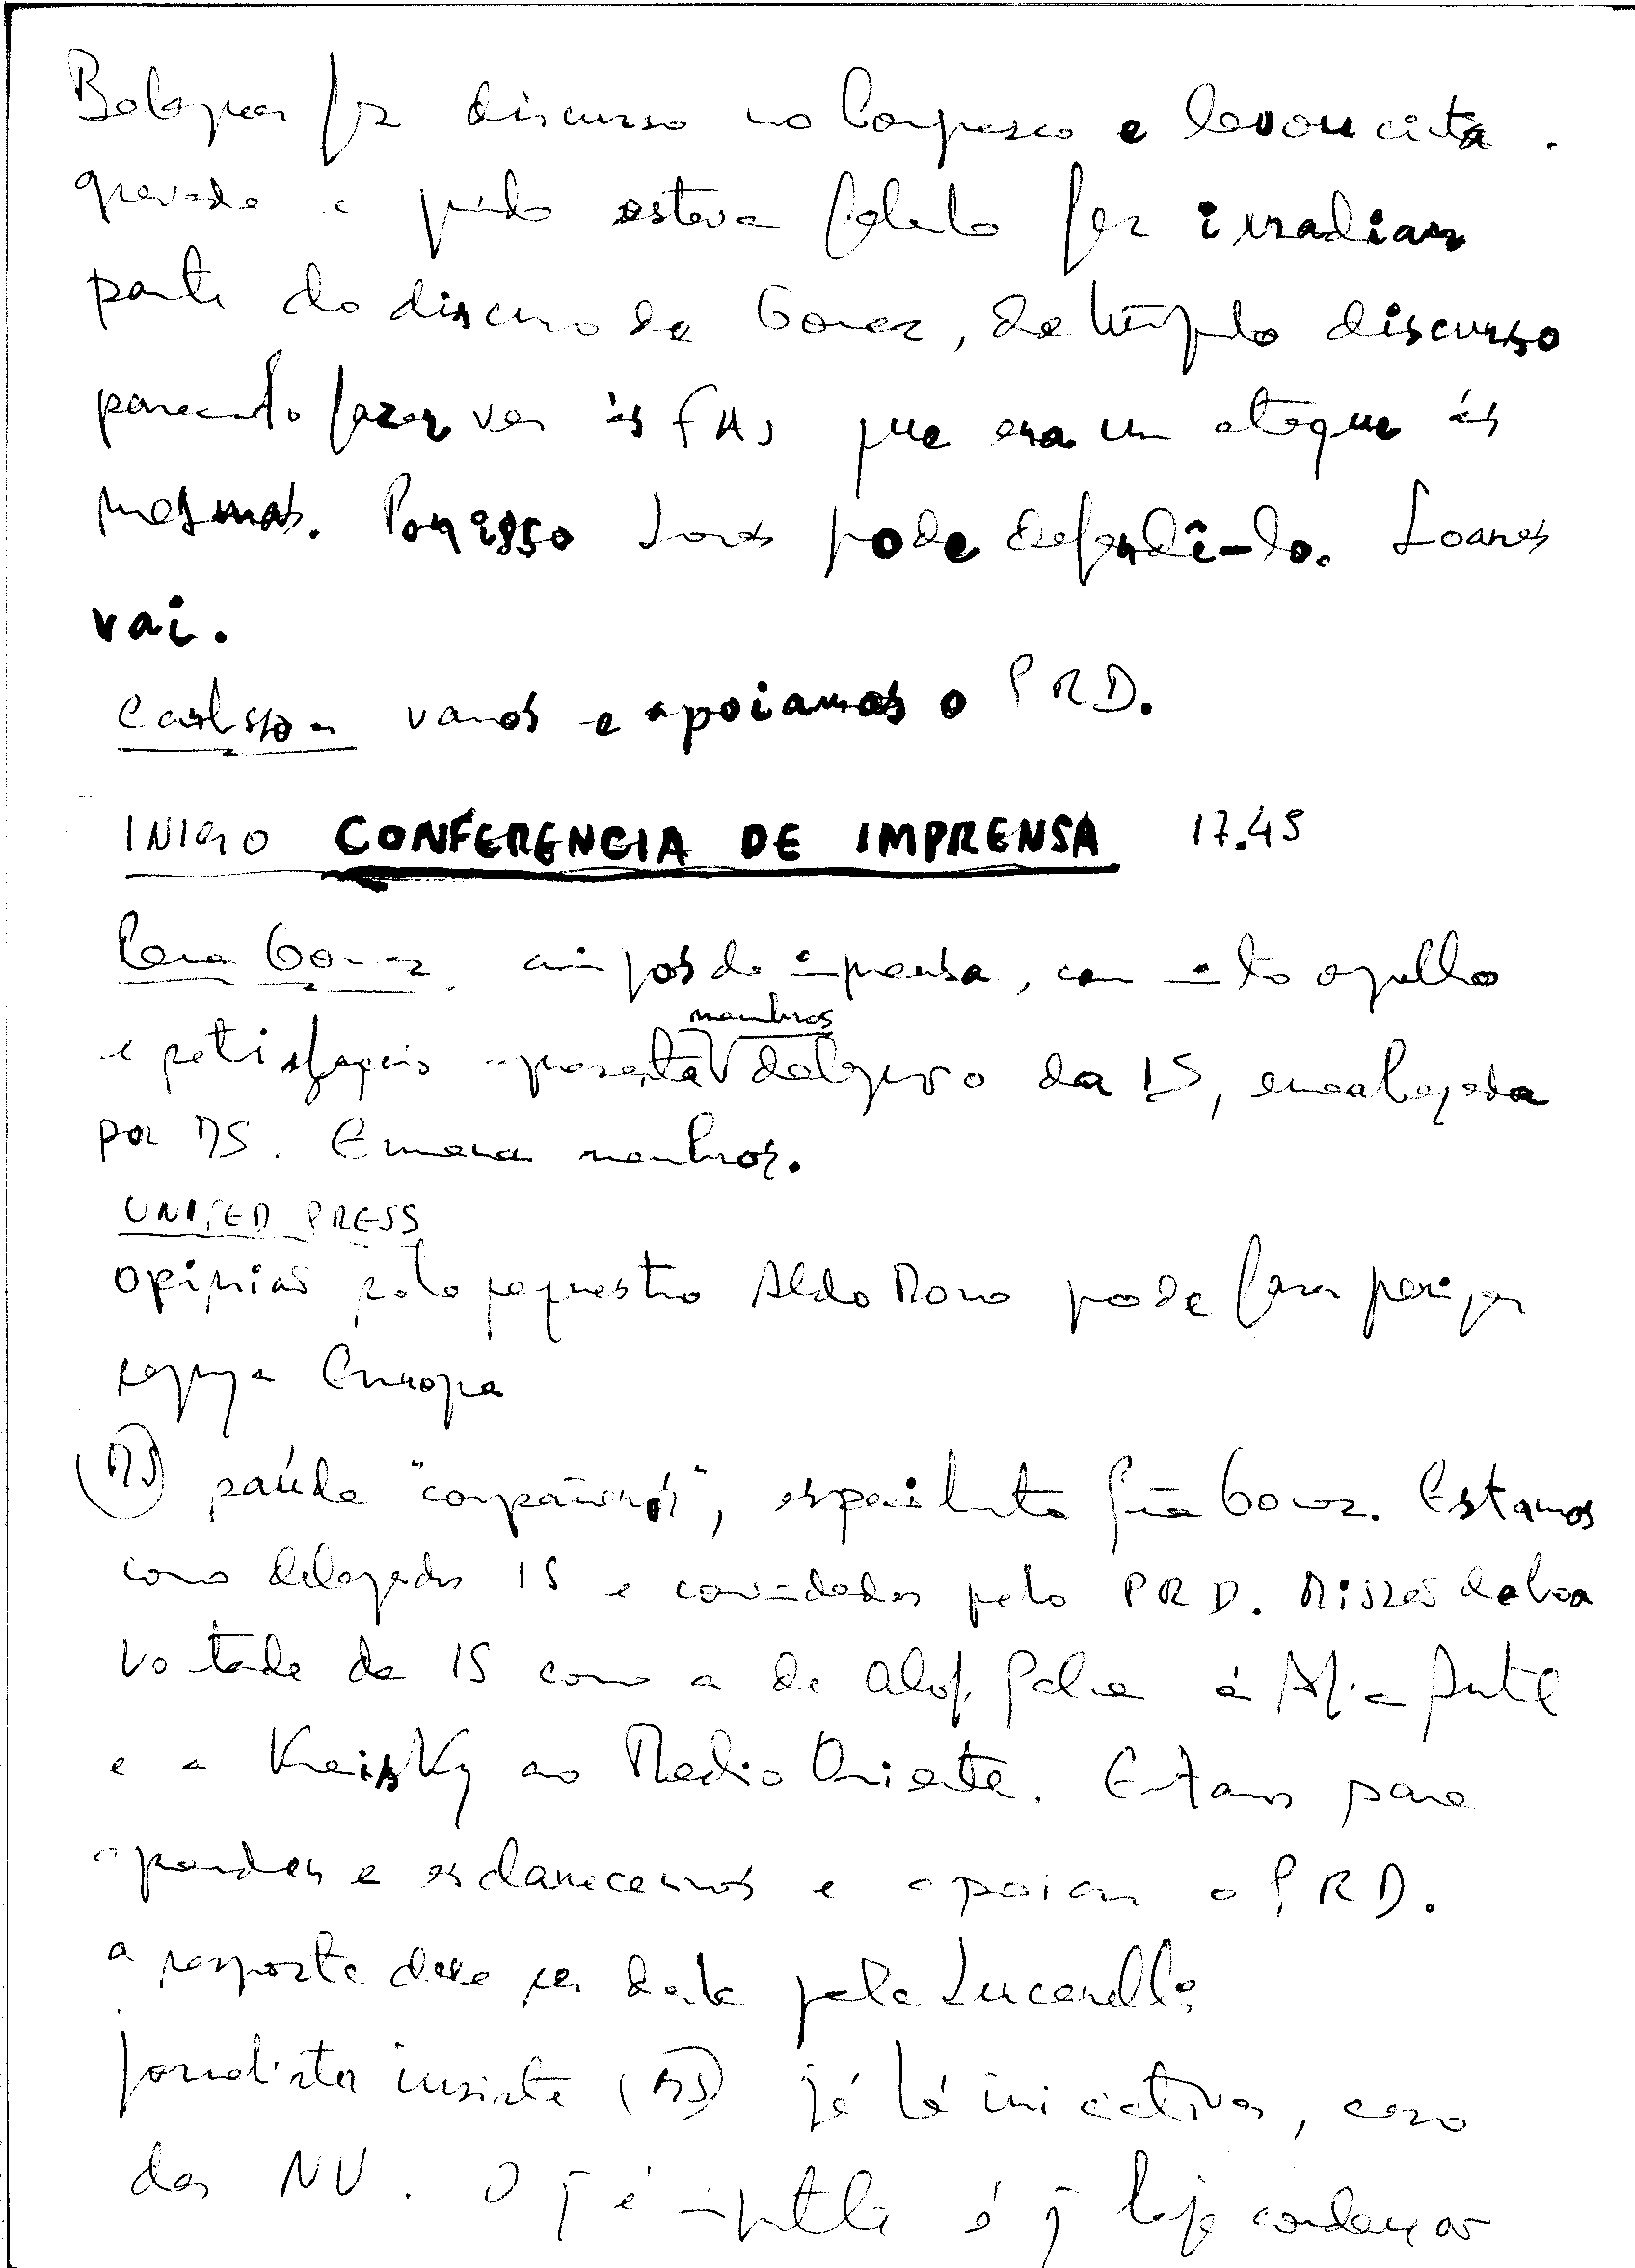 Balaguer fez discurso no Congresso e levou cinta
gravada e quando estava falando fez irradiar
parte do discurso de Gomez, de tempo do discurso
parecendo fazer ver às FAs que era um ataque às
mesmas. Por isso Soares pode defendê-lo. Soares
vai.
Carlsson vamos e apoiamos o PRD.
INICIO CONFERENCIA DE IMPRENSA 17.45
Pena Gomez amigos da imprensa, com muito orgulho
e satisfação apresenta membros delegação da IS, encabeçada
por MS. Enumera membros.
UNITED PRESS
opinião sobre sequestro Aldo Moro pode fazer perigar
segurança Europa
(MS) saúda "compañeros", especialmente Peña Gomez. Estamos
como delegados IS e convidados pelo PRD. Missões de boa
vontade da IS como a de Olof Palme à Africa Austral
e a Kreisky ao Medio Oriente. Estamos para
aprender e esclarecermos e apoiar o PRD.
a resposta deve ser dada pela
jornalista insiste (MS) já há iniciativas, caso
das NU. O q é importante é q haja condenar